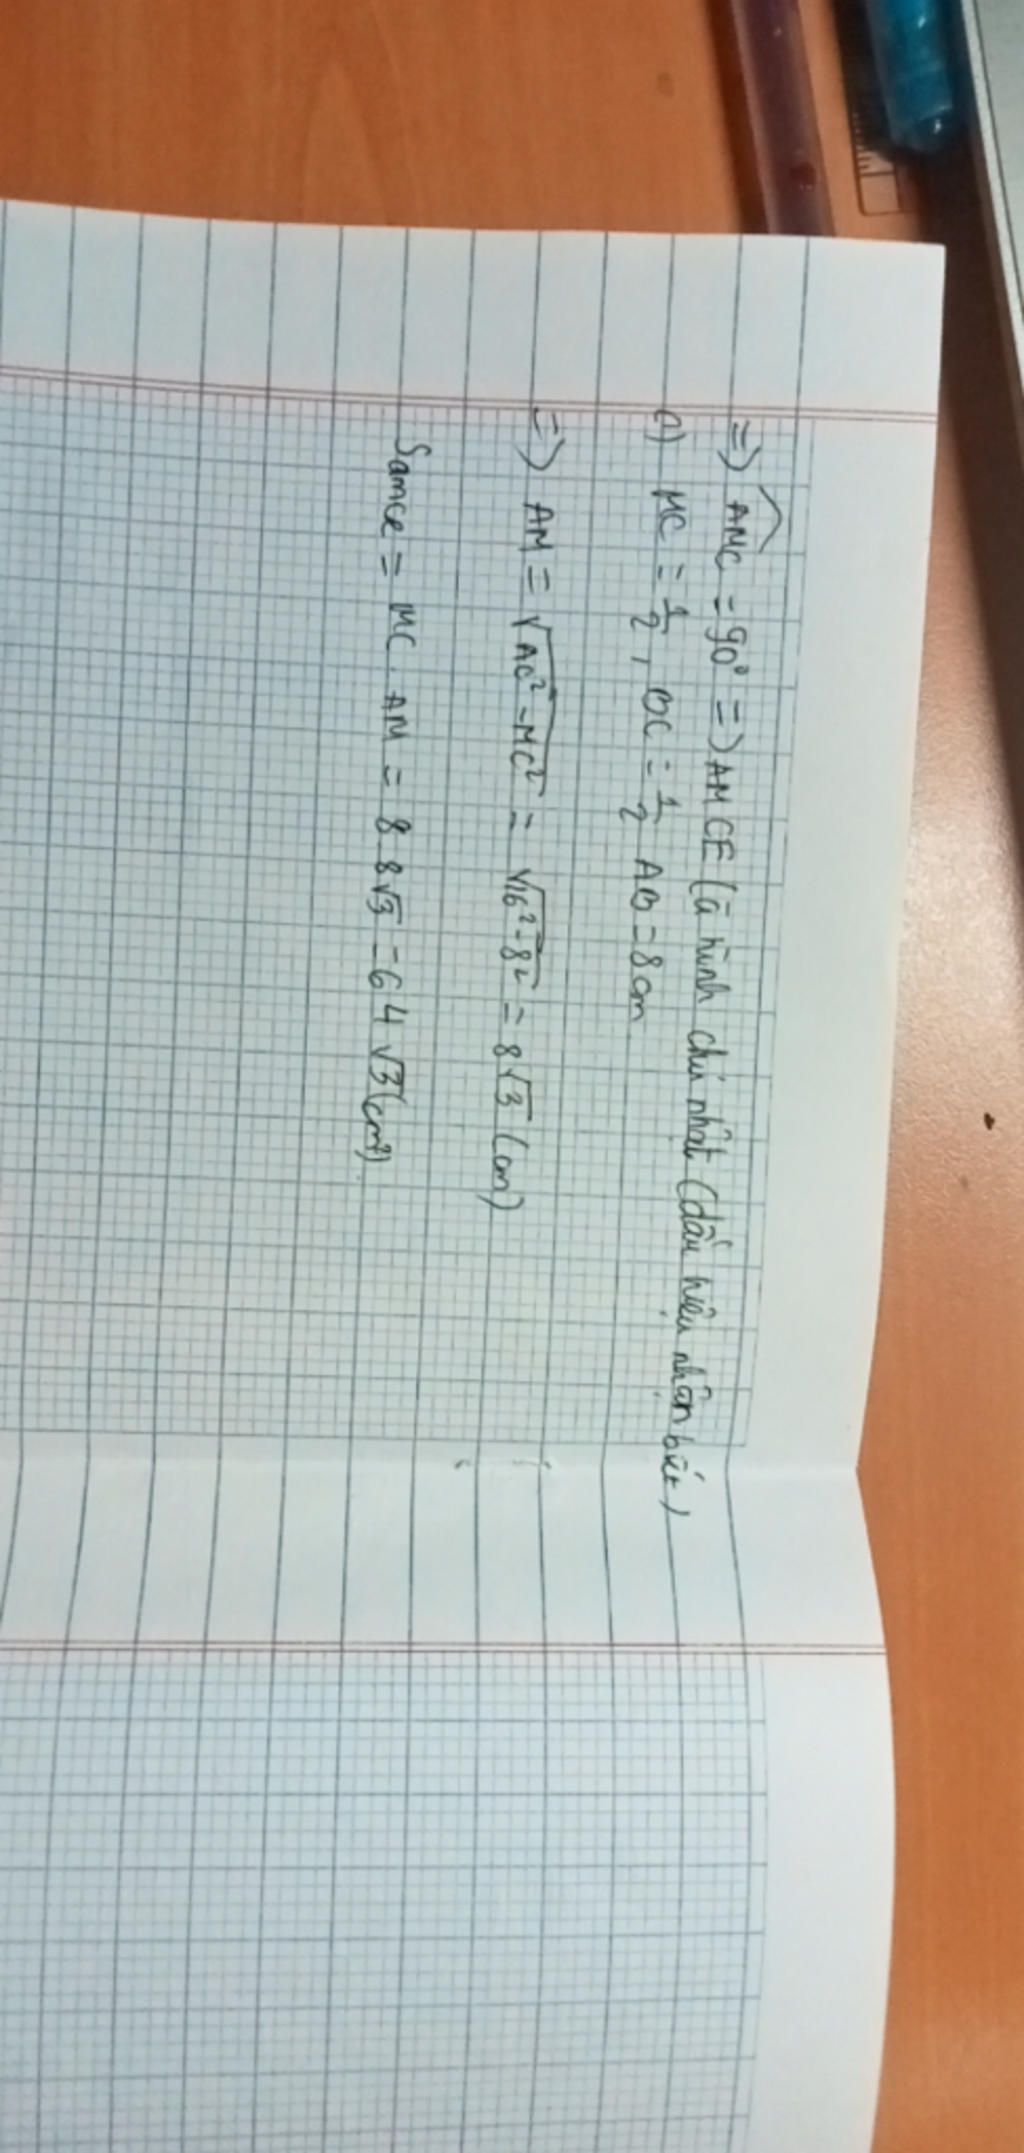 => AMC = 90° => AMCE là hình chữ nhật (dấu hiệu nhận biết)
c) MC = 1/2 . BC = 1/2 AB = 8cm
=> AM = √AC² - MC² = √16² - 8² = 8√3 (cm)
Samce = MC . AM = 8.8√3 = 64√3 (cm²)